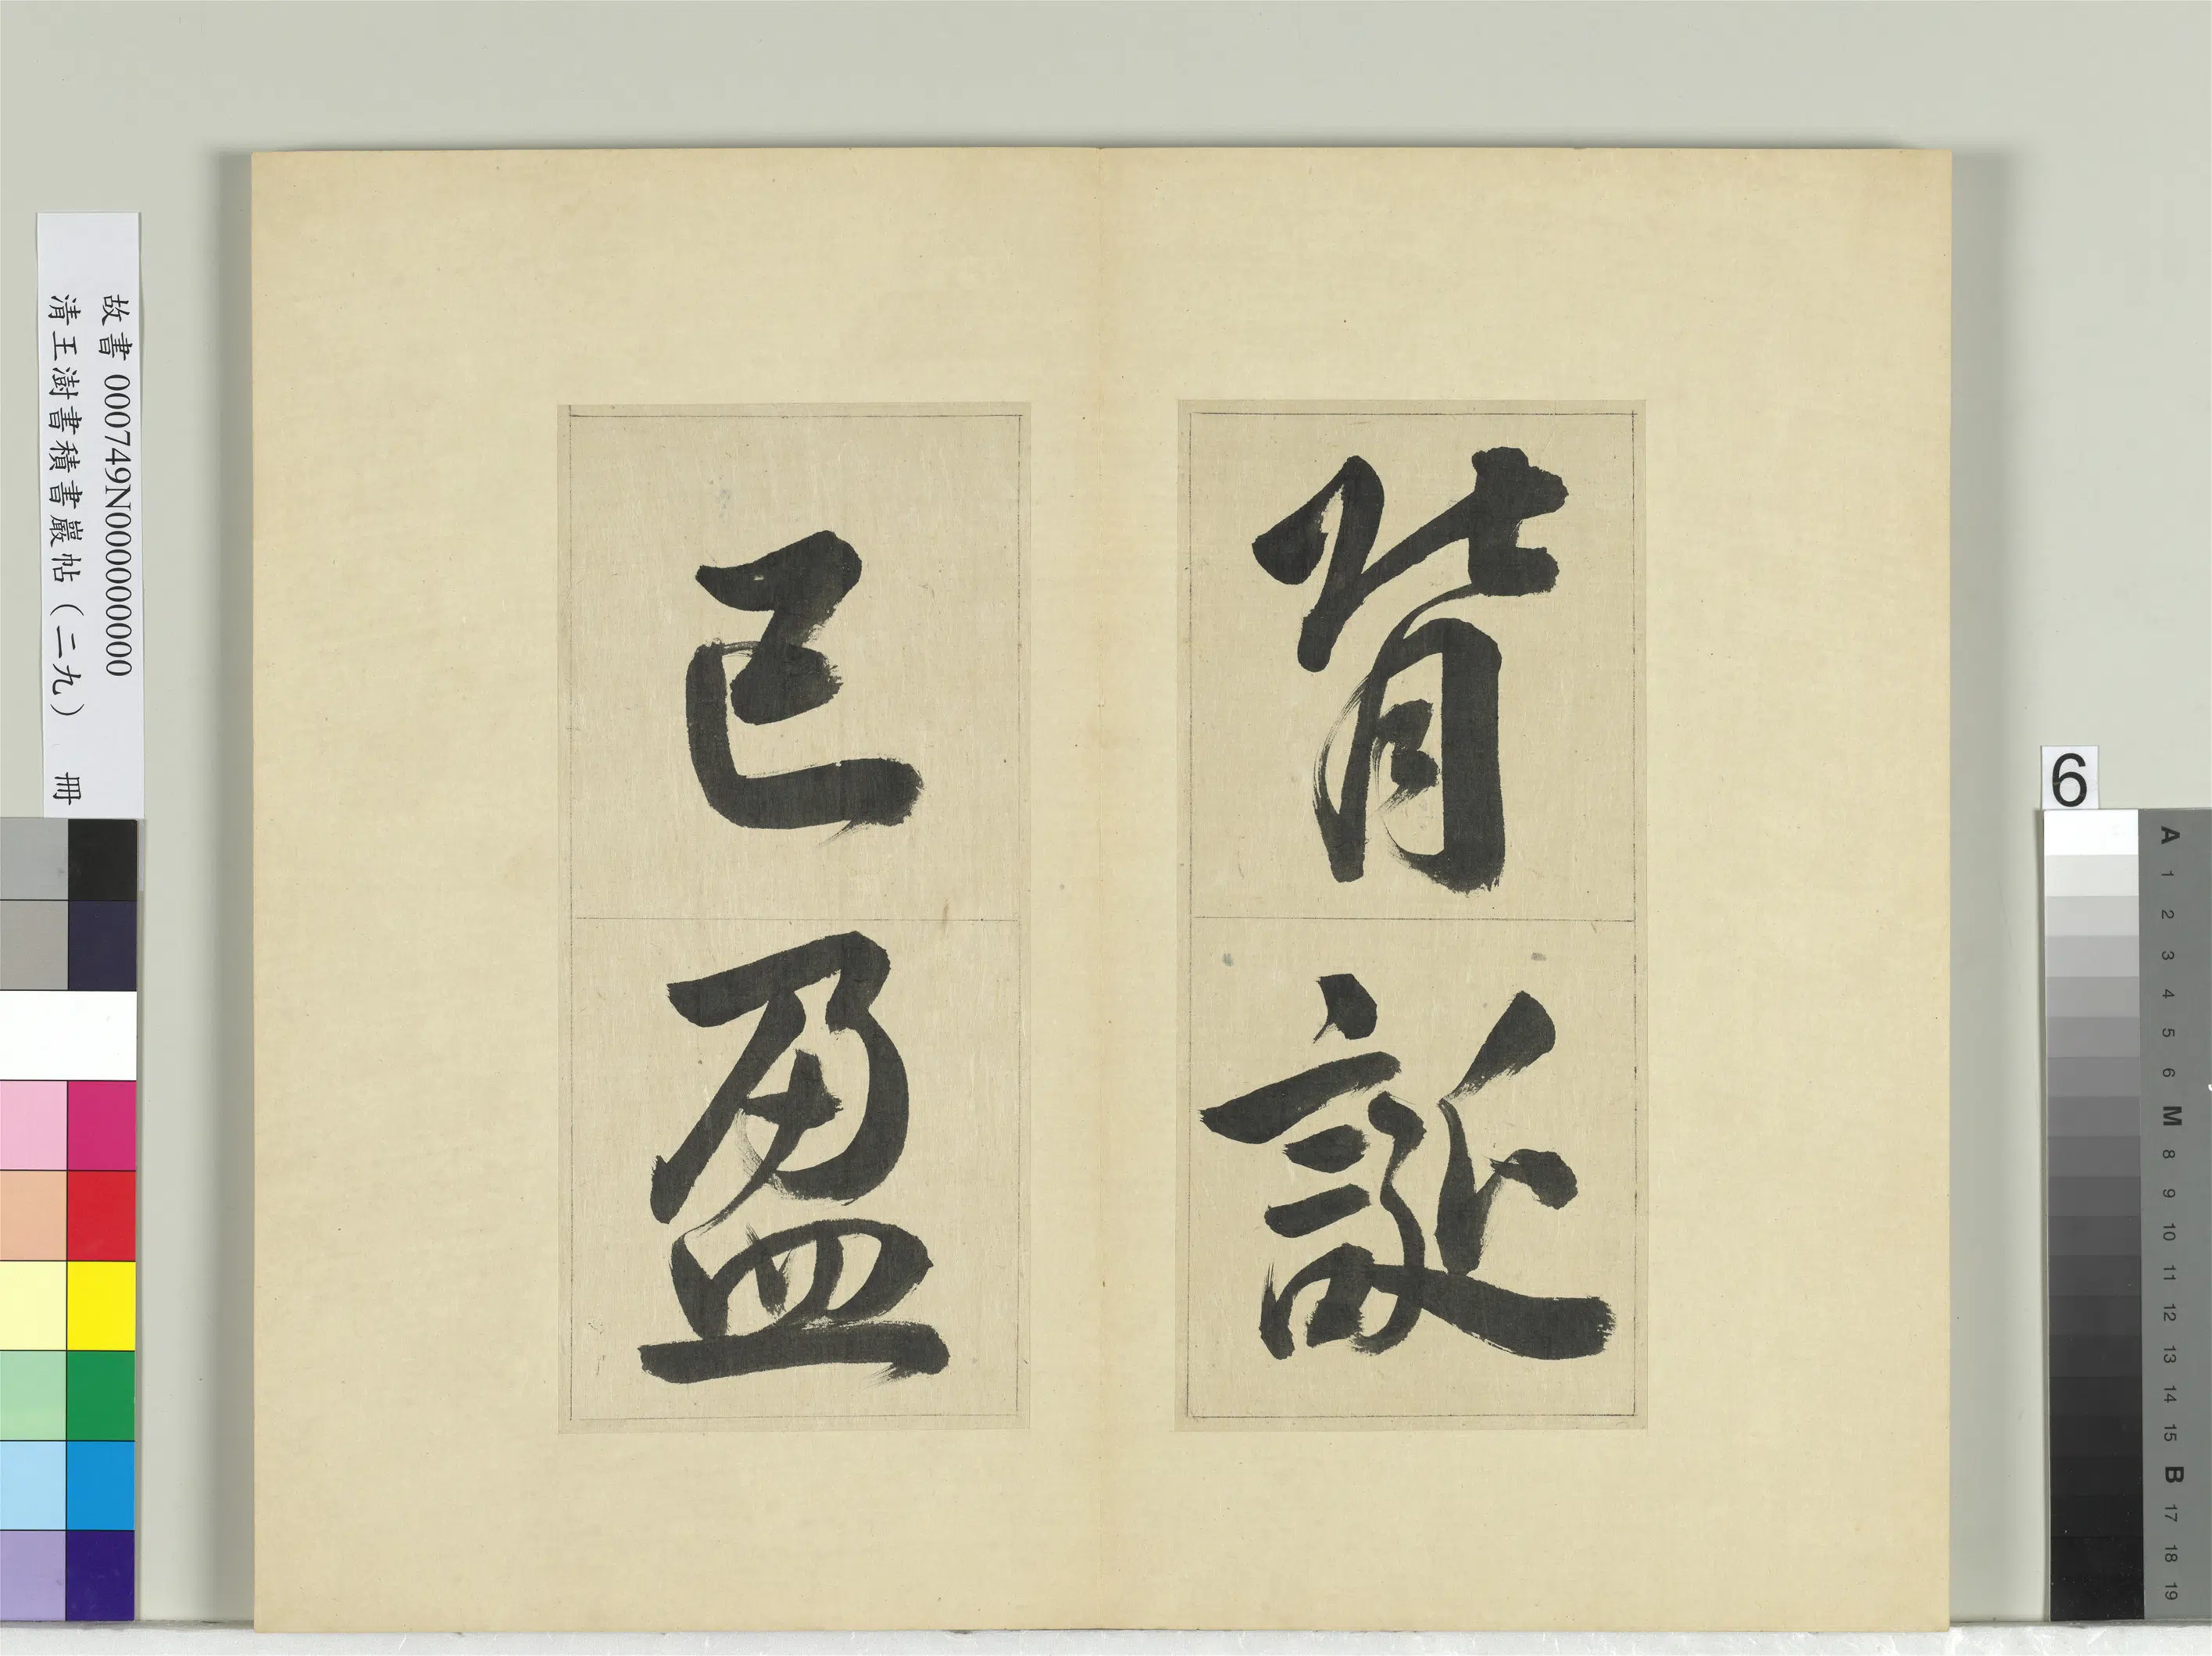 背誕
已盈
故書 000749N000000000
清王澍書積書巖帖（二九） 冊
6
A
1
2
3
4
5
6
M
8
9
10
11
12
13
14
15
B
17
18
19